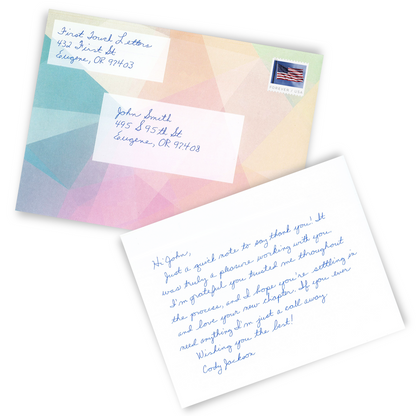 First Touch Letters
432 First St
Eugene, OR 97403
FOREVER USA
John Smith
495 S 95th St
Eugene, OR 97408
Hi John,
Just a quick note to say thank you! It
was truly a pleasure working with you.
I'm grateful you trusted me throughout
the process, and I hope you're settling in
and love your new chapter. If you ever
need anything I'm just a call away
Wishing you the best!
Cody Jackson